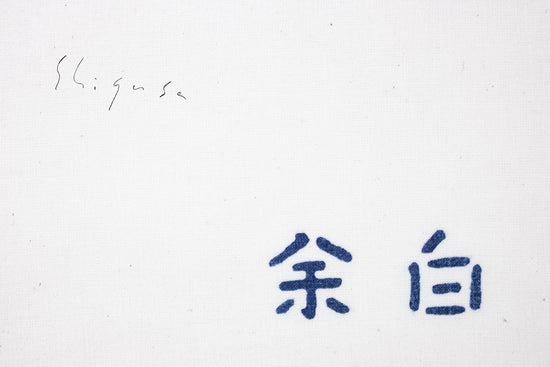 Shigusa
余白